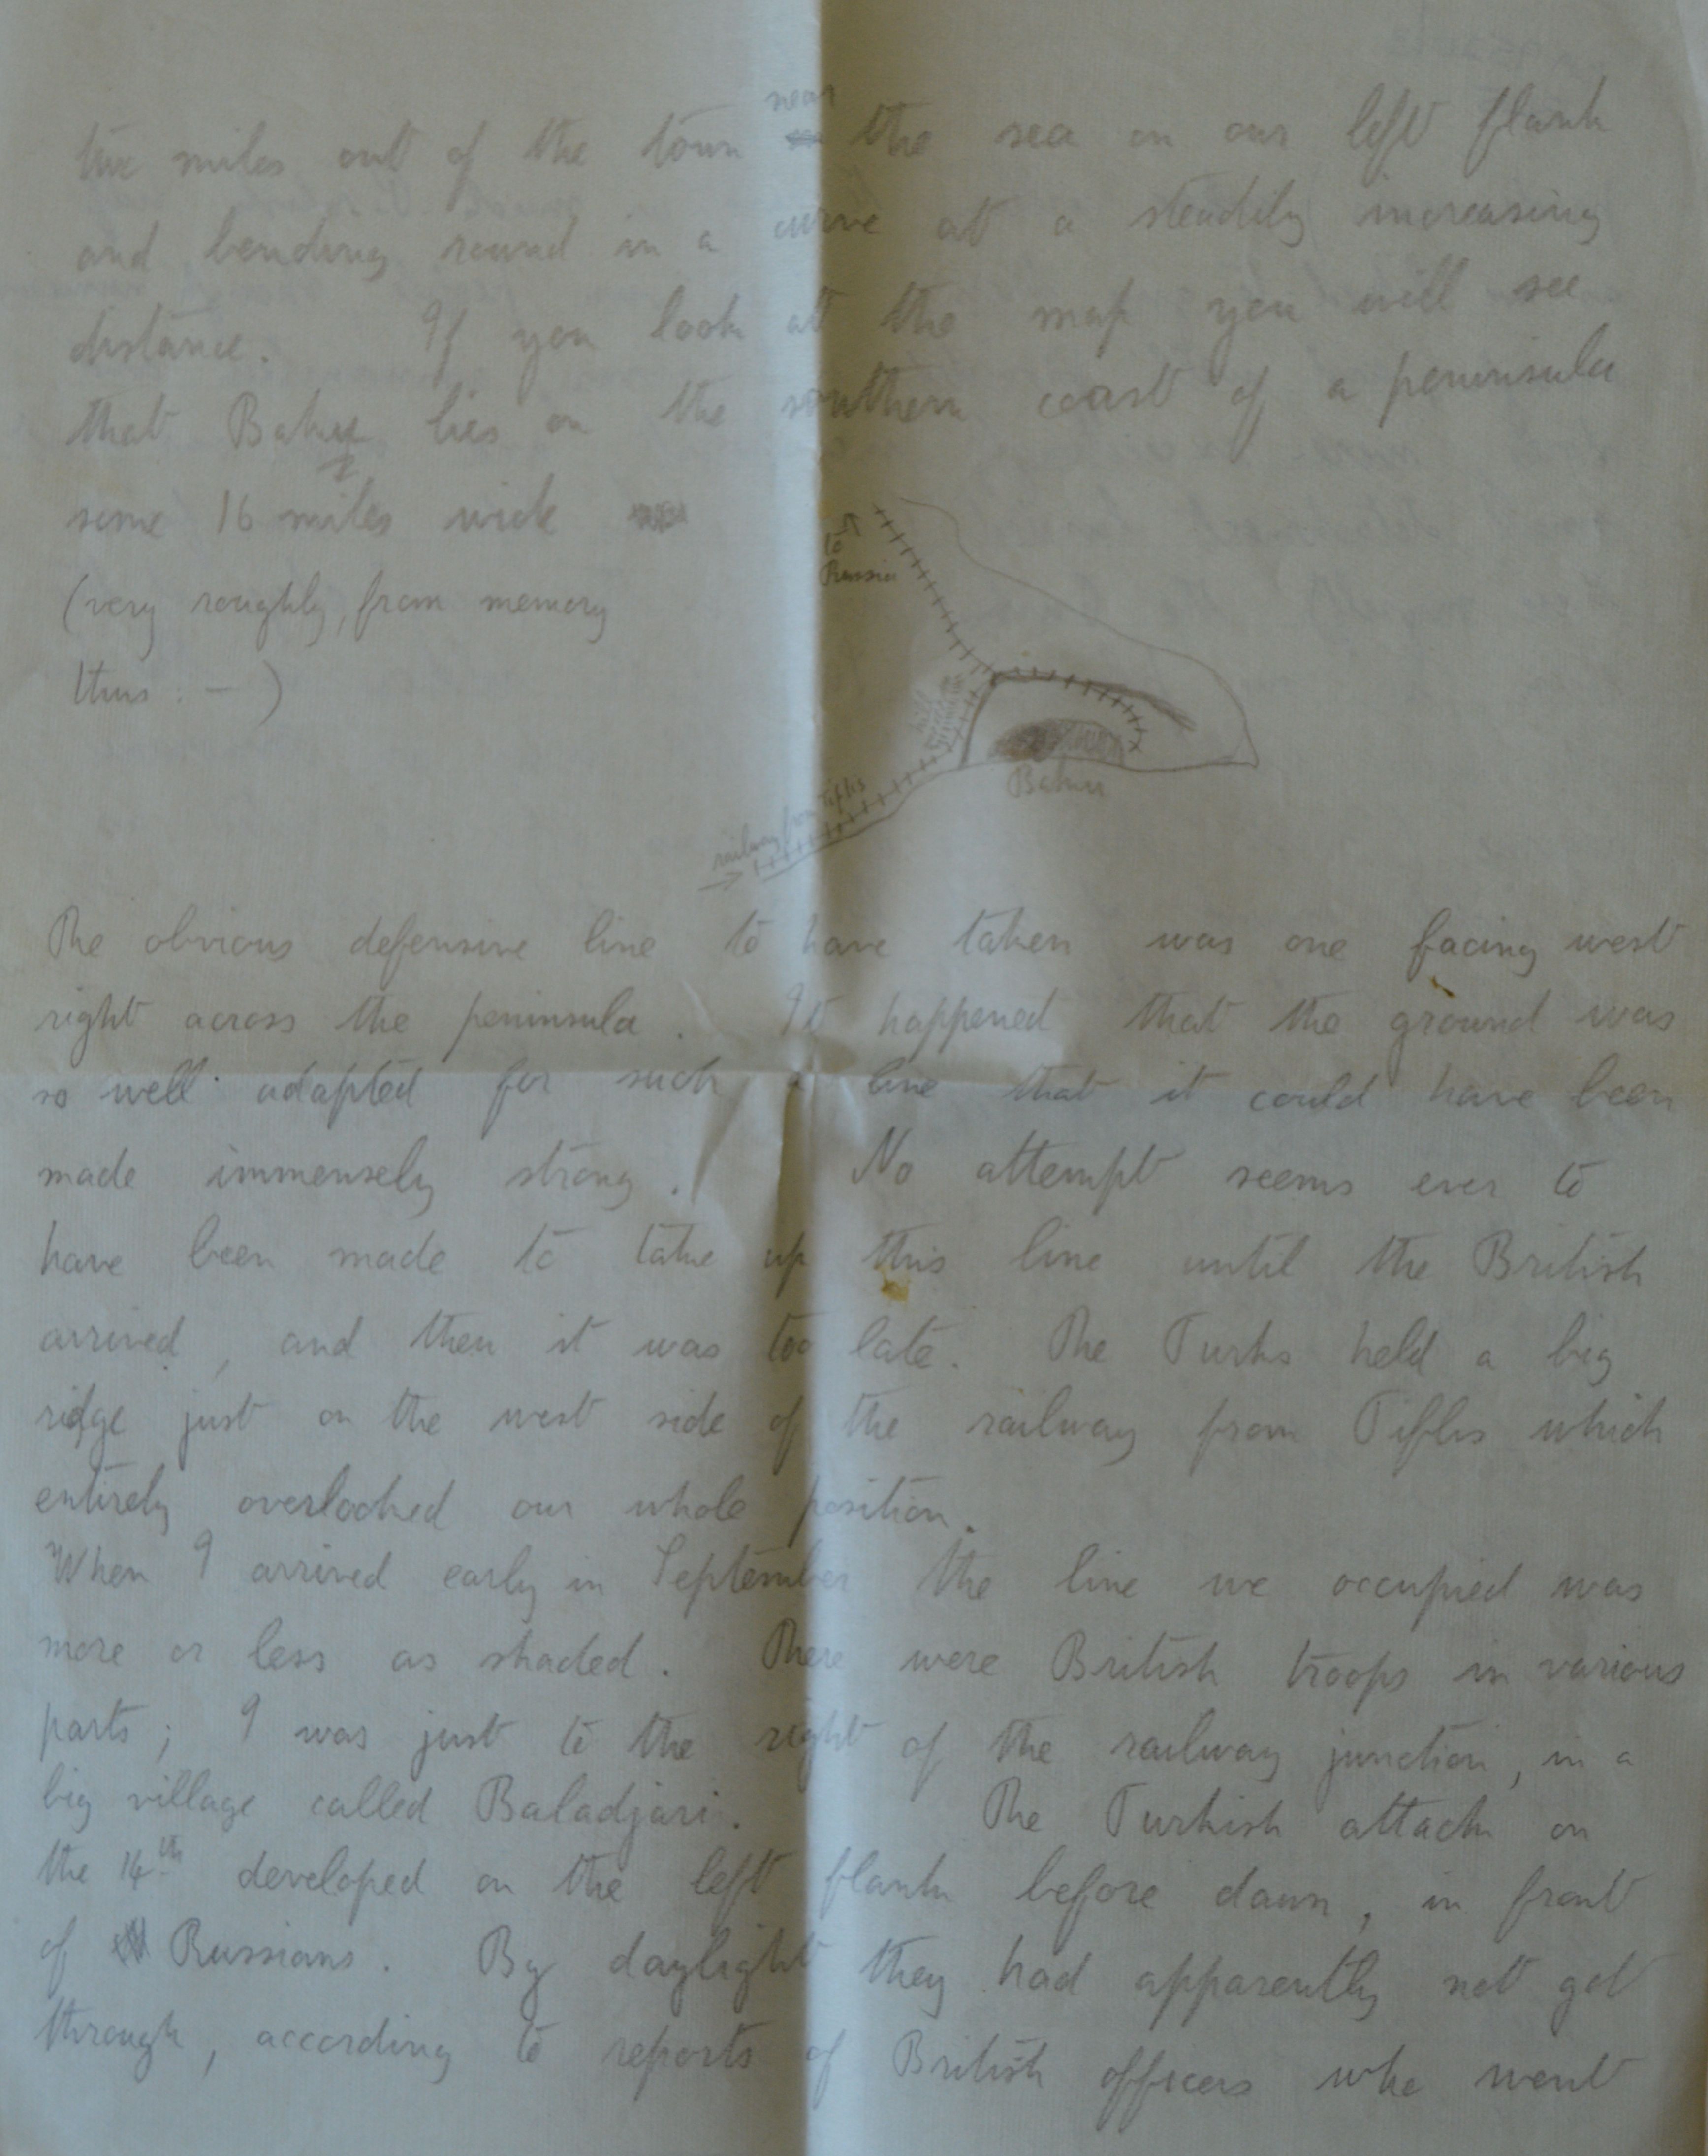 two miles out of the town near the sea on our left flank
and bending round in a curve at a steadily increasing
distance. If you look at the map you will see
that Baku lies on the southern coast of a peninsula
some 16 miles wide
(very roughly, from memory
thus : — )
to
Russia
Baku
railway from Tiflis
The obvious defensive line to have taken was one facing west
right across the peninsula. It happened that the ground was
so well adapted for such a line that it could have been
made immensely strong. No attempt seems ever to
have been made to take up this line until the British
arrived, and then it was too late. The Turks held a big
ridge just on the west side of the railway from Tiflis which
entirely overlooked our whole position.
When I arrived early in September the line we occupied was
more or less as shaded. There were British troops in various
parts; I was just to the right of the railway junction, in a
big village called Baladjari. The Turkish attack on
the 14th developed on the left flank before dawn, in front
of Russians. By daylight they had apparently not got
through, according to reports of British officers who went